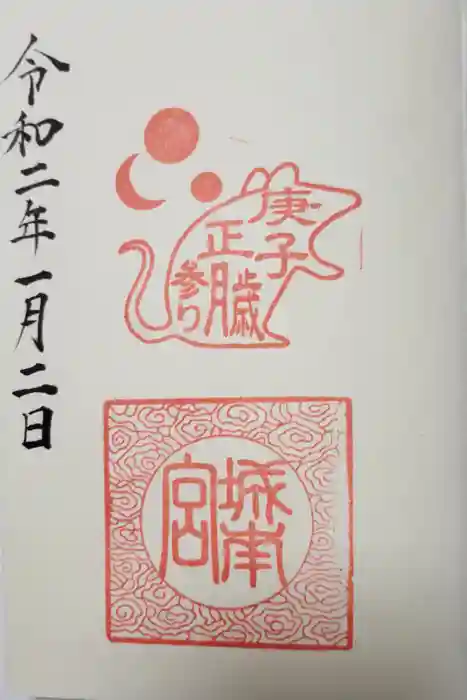 庚子
正月歳
参り
城南
宮
令和二年一月二日